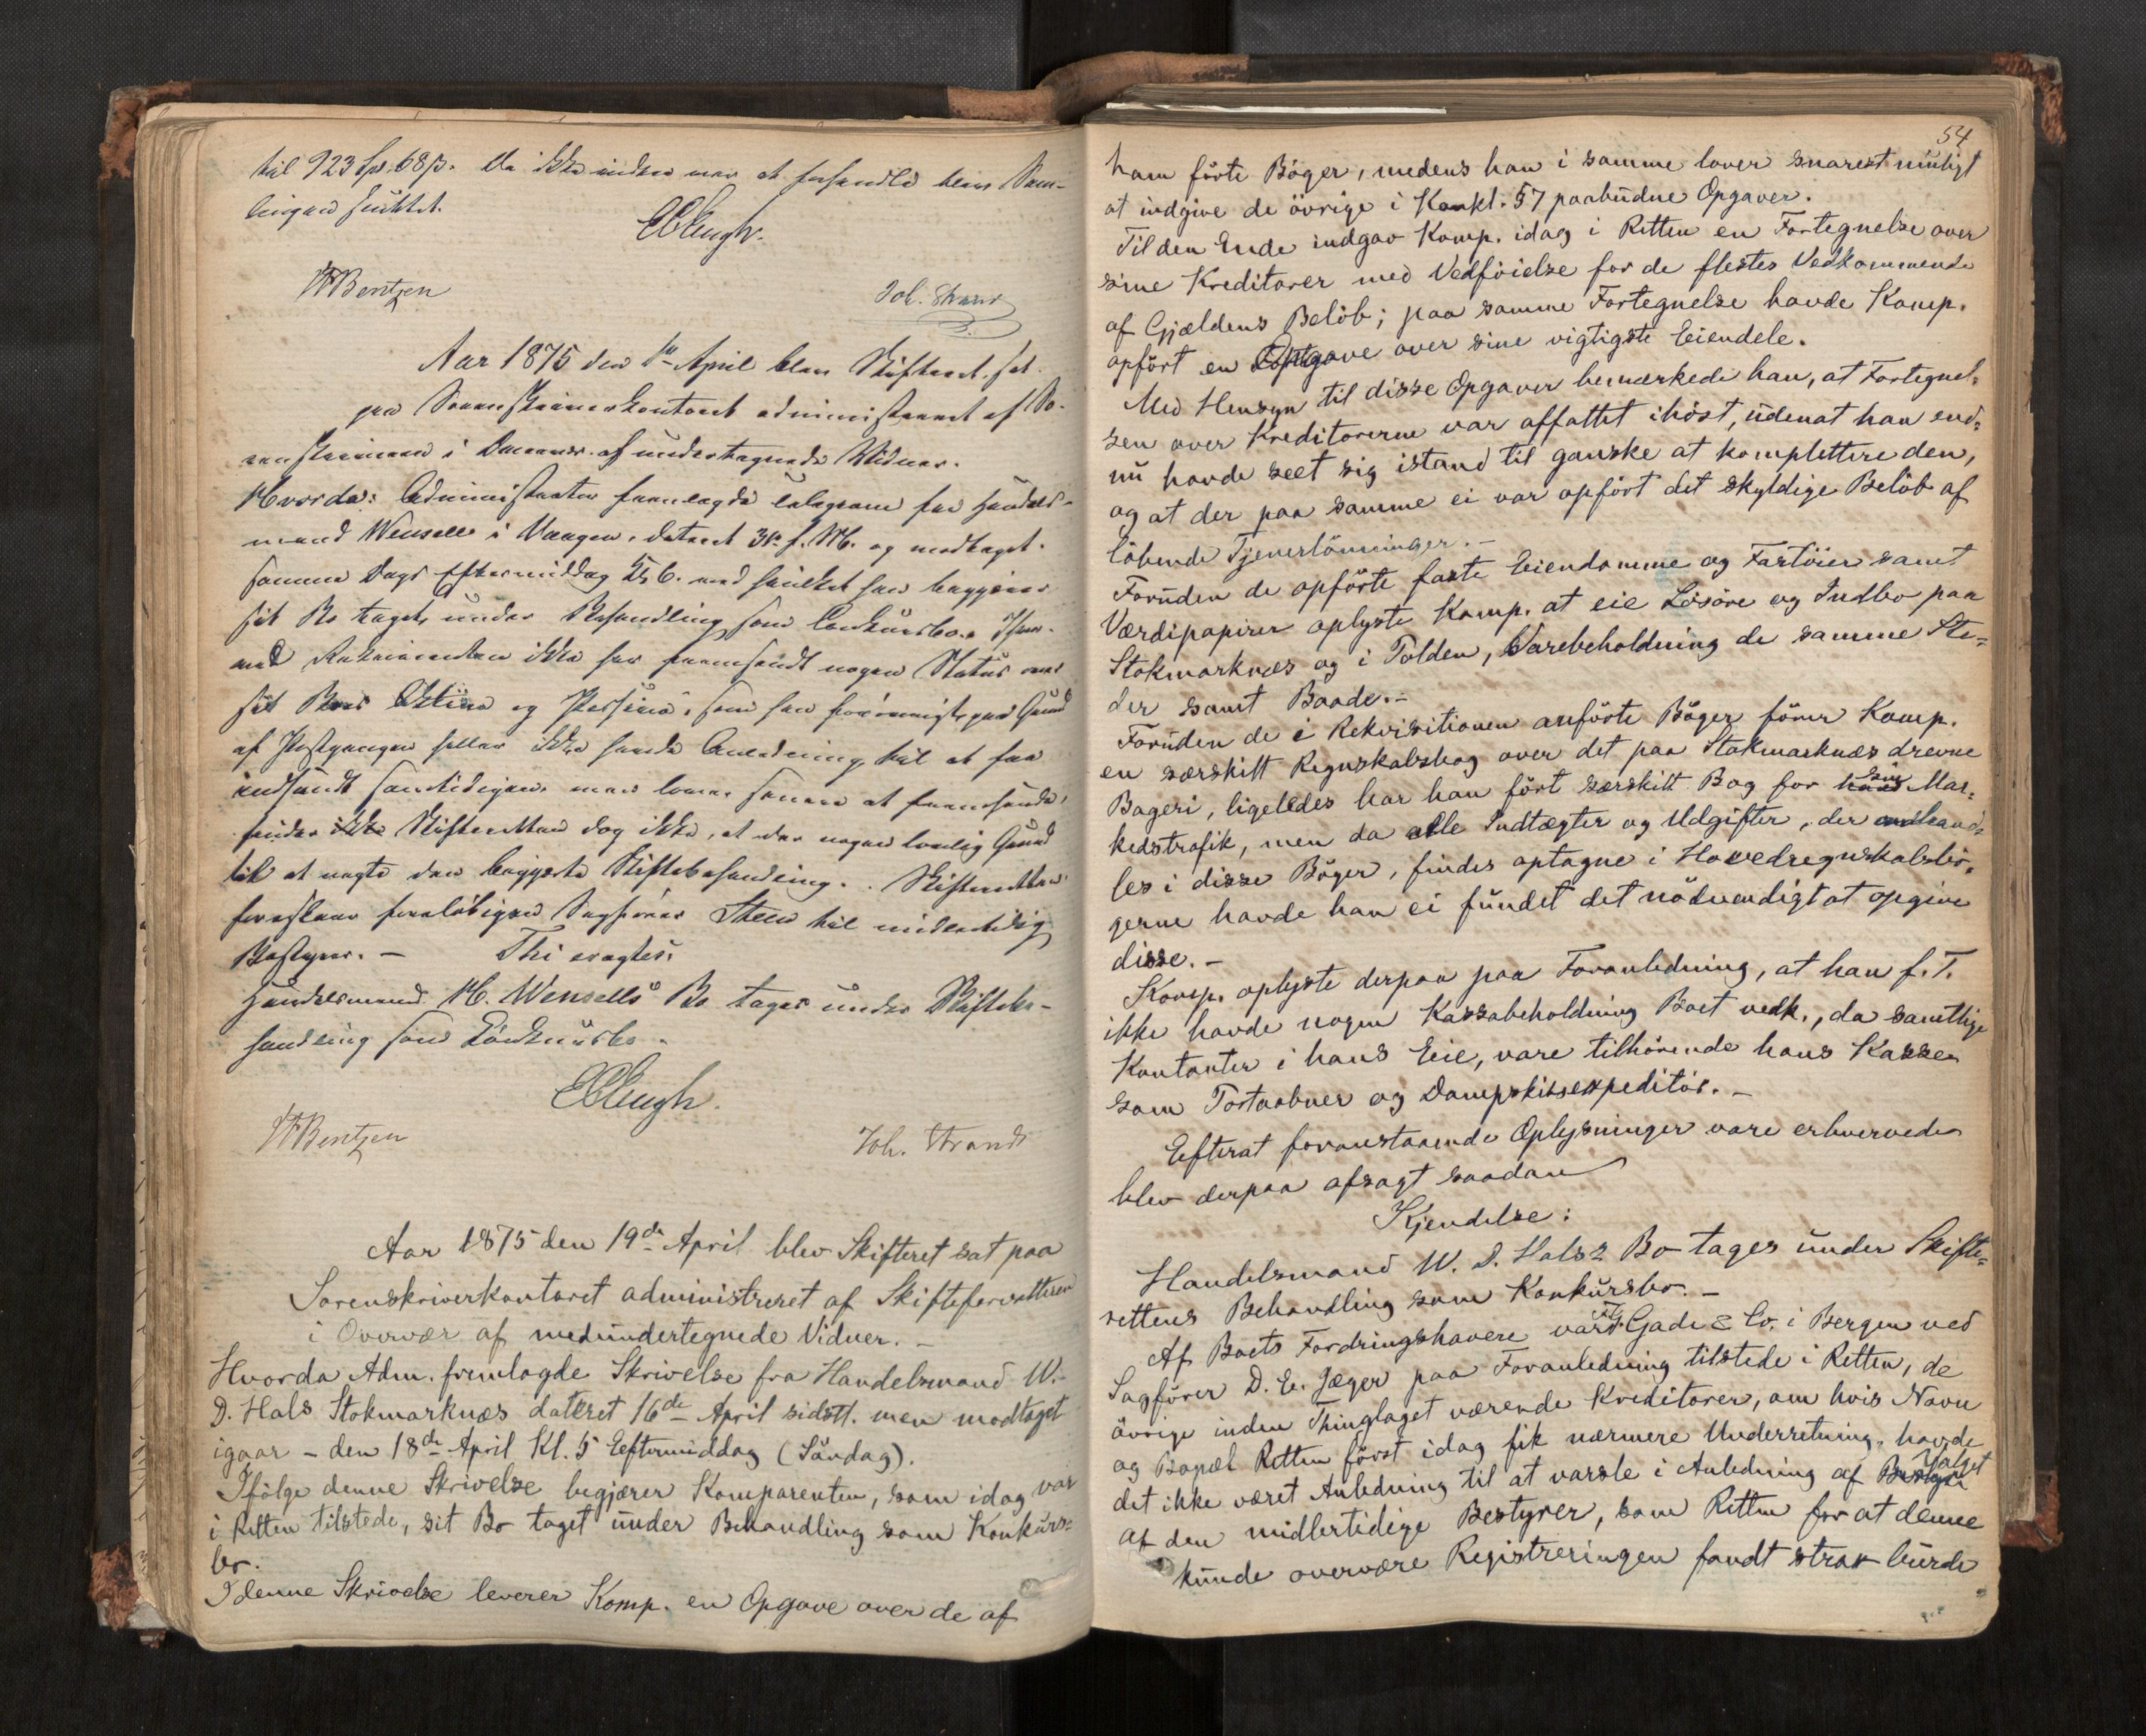 til 923 Spd. 68 ß. Da ikke videre var at forhandle blev Sam-
lingen sluttet.
EBlengh.
WBentzen
Joh. Strand
Aar 1875 den 1ste April blev Skifteret sat
paa Sorenskriverkontoret administreret af So-
renskriveren i Overvær af undertegnede Vidner.
Hvorda: Administrator fremlagde Telegram fra Handels-
mand Wensell i Vaagen, dateret 31te f. M. og modtaget
samme Dags Eftermiddag Kl 6. ved hvilket han begjærer
sit Bo taget under Behandling som Conkursbo.
Rekvirenten ikke har fremsendt nogen Status over
sit Boes Aktiva og Passiva, som han formentlig paa Grund
af Postgangen heller ikke havde Anledning til at faa
indsendt samtidigen, men lover senere at fremsende,
finder Skifteretten dog ikke, at der nogen lovlig Grund
til at negte den begjærte Skiftebehandling. Skifteretten
foreslaar foreløbigen Sagfører Steen til midlertidig
Bestyrer. – Thi eragtes:
Handelsmand M. Wensells Bo tages under Skiftebe-
handling som Conkursbo.
EBlengh.
WBentzen
Joh. Strand
Aar 1875 den 19de April blev Skifteret sat paa
Sorenskriverkontoret administreret af Skifteforvalteren
i Overvær af medundertegnede Vidner. –
Hvorda Adm. fremlagde Skrivelse fra Handelsmand W.
D. Hals Stokmarknæs dateret 16de April sidstl. men modtaget
igaar – den 18de April Kl. 5 Eftermiddag (Søndag).
Ifölge denne Skrivelse begjærer Komparenten, som idag var
i Retten tilstede, sit Bo taget under Behandling som Konkurs-
bo.
I denne Skrivelse leverer Komp. en Opgave over de af
54
ham förte Böger, medens han i samme lover snarest muligt
at indgive de övrige i Konkl. §7 paabudne Opgaver.
Til den Ende indgav Komp. idag i Retten en Fortegnelse over
sine Kreditorer med Vedföielse for de flestes Vedkommende
af Gjældens Belöb; paa samme Fortegnelse havde Komp.
opfört en Opgave over sine vigtigste Eiendele.
Med Hensyn til disse Opgaver bemærkede han, at Fortegnel-
sen over Kreditorerne var affattet ihöst, udenat han end-
nu havde seet sig istand til ganske at komplettere den,
og at der paa samme ei var opfört det skyldige Belöb af
löbende Tjenerlönninger. –
Foruden de opförte faste Eiendomme og Fartöier samt
Værdipapirer oplyste Komp. at eie Lösöre og Indbo paa
Stokmarknæs og i Tolden, Varebeholdning de samme Ste-
der samt Baade. –
Foruden de i Rekvisitionen anförte Böger förer Komp.
en særskilt Regnskabsbog over det paa Stokmarknæs drevne
Bageri, ligeledes har han fört særskilt Bog for sin Mar-
kedstrafik, men da alle Indtægter og Udgifter, der omhand-
les i disse Böger, findes optagne i Hovedregnskabsbö-
gerne havde han ei fundet det nödvendigt at opgive
disse. –
Komp. oplyste derpaa paa Foranledning, at han f. T.
ikke havde nogen Kassabeholdning Boet vedk., da samtlige
Kontanter i hans Eie, vare tilhörende hans Kasser
som Postaabner og Dampskibsexpeditör. –
Efterat foranstaaende Oplysninger vare erhvervede
blev derpaa afsagt saadan
Kjendelse:
Handelsmand W. D. Hals's Bo tages under Skifte-
rettens Behandling som Konkursbo. –
Af Boets Fordringshavere var F. G. Gade & Co. i Bergen ved
Sagförer D. E. Jæger paa Foranledning tilstede i Retten, de
övrige inden Thinglaget værende Kreditorer, om hvis Navn
og Bopæl Retten först idag fik nærmere Underretning, havde
det ikke været Anledning til at varsle i Anledning af Valget
af den midlertidige Bestyrer, som Retten for at denne
kunde overvære Registreringen fandt strax burde